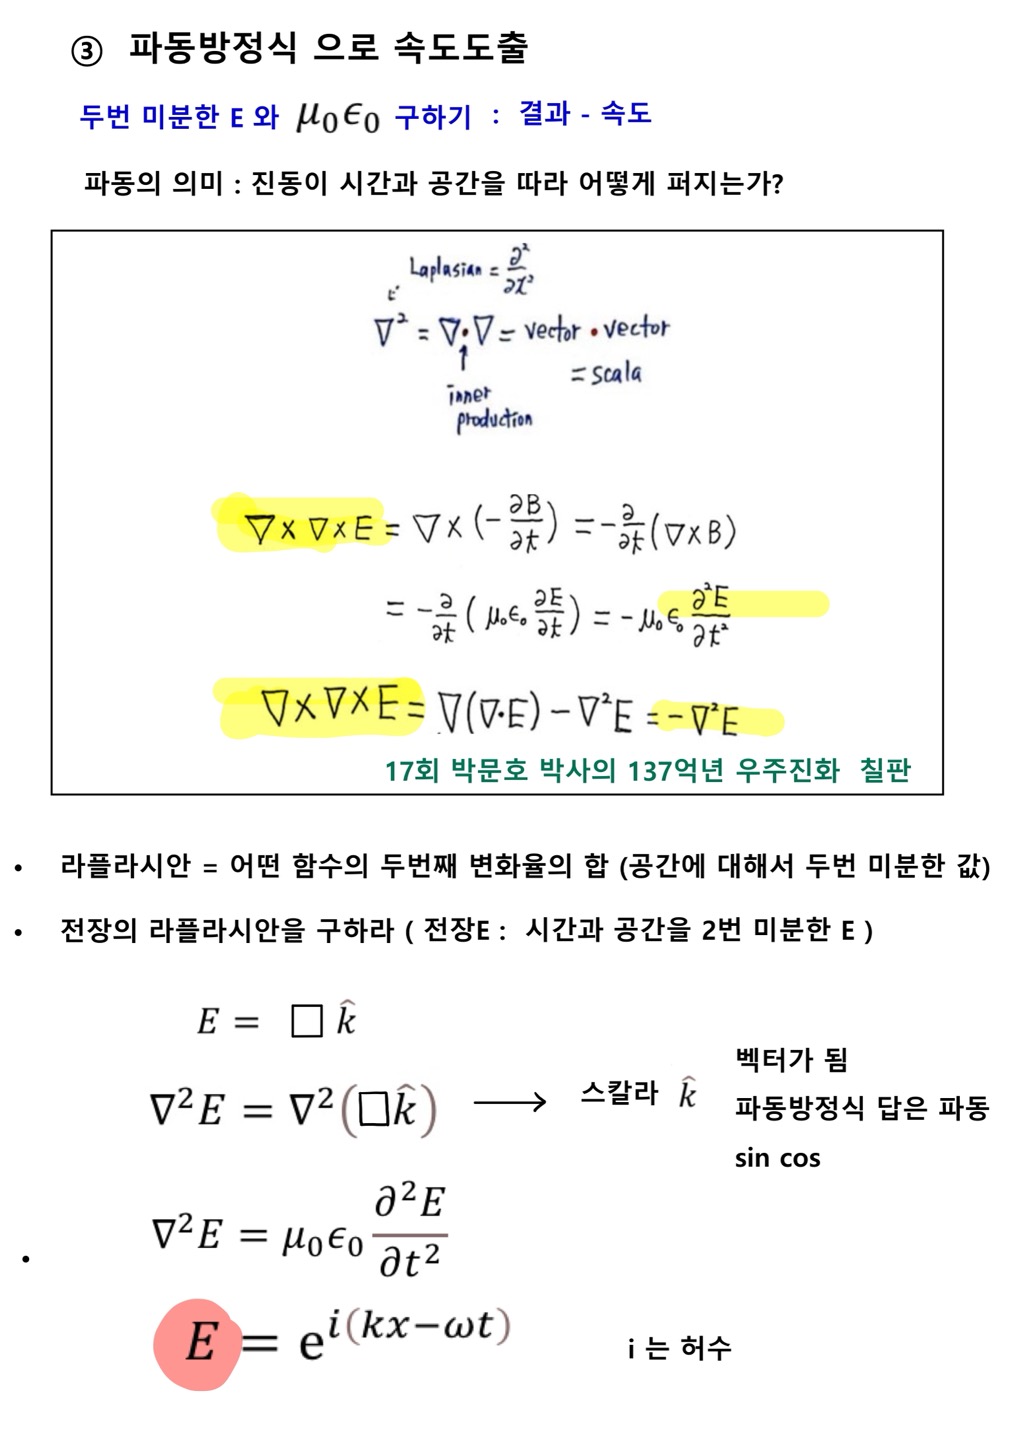 ③ 파동방정식 으로 속도도출
두번 미분한 E 와 μ₀ϵ₀ 구하기 : 결과 - 속도
파동의 의미 : 진동이 시간과 공간을 따라 어떻게 퍼지는가?
Laplasian = ∂²/∂x²
∇² = ∇•∇ = vector • vector
= scala
inner
production
∇×∇×E = ∇×(-∂B/∂t) = -∂/∂t(∇×B)
= -∂/∂t(μ₀ϵ₀ ∂E/∂t) = -μ₀ϵ₀ ∂²E/∂t²
∇×∇×E = ∇(∇·E) - ∇²E = -∇²E
17회 박문호 박사의 137억년 우주진화 칠판
• 라플라시안 = 어떤 함수의 두번째 변화율의 합 (공간에 대해서 두번 미분한 값)
• 전장의 라플라시안을 구하라 ( 전장E : 시간과 공간을 2번 미분한 E )
E = □ k̂
∇²E = ∇²(□k̂) → 스칼라 k̂
벡터가 됨
파동방정식 답은 파동
sin cos
∇²E = μ₀ϵ₀ ∂²E/∂t²
•
E = e^i(kx−ωt)
i 는 허수